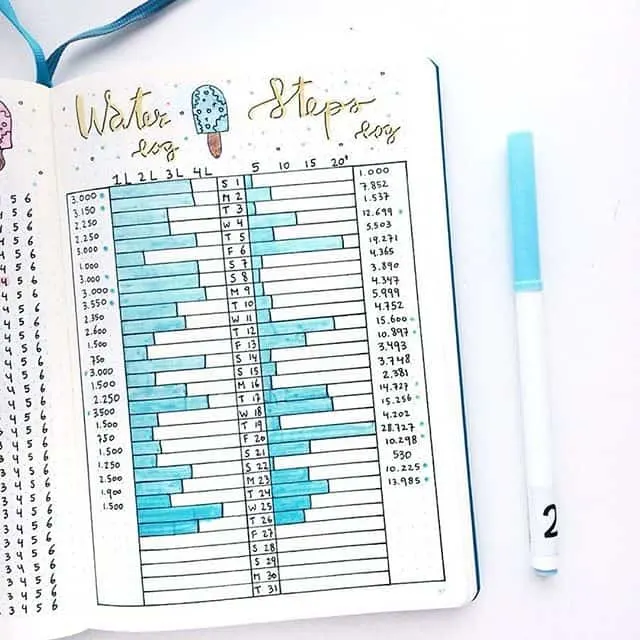 Water log
Steps log
1L 2L 3L 4L
5 10 15 20
3.000
3.150
2.250
2.250
3.000
1.000
3.000
3.000
3.550
2.350
2.600
1.500
750
3.000
1.500
2.250
3500
1.500
750
1.500
1.250
2.500
1.900
1.500
S 1
M 2
T 3
W 4
T 5
F 6
S 7
S 8
M 9
T 10
W 11
T 12
F 13
S 14
S 15
M 16
T 17
W 18
T 19
F 20
S 21
S 22
M 23
T 24
W 25
T 26
F 27
S 28
S 29
M 30
T 31
1.000
7.852
1.537
12.699
5.503
19.271
4.365
3.890
4.347
5.999
4.752
15.600
10.897
3.493
3.748
2.381
14.727
15.256
4.202
28.727
10.298
530
10.225
13.985
2